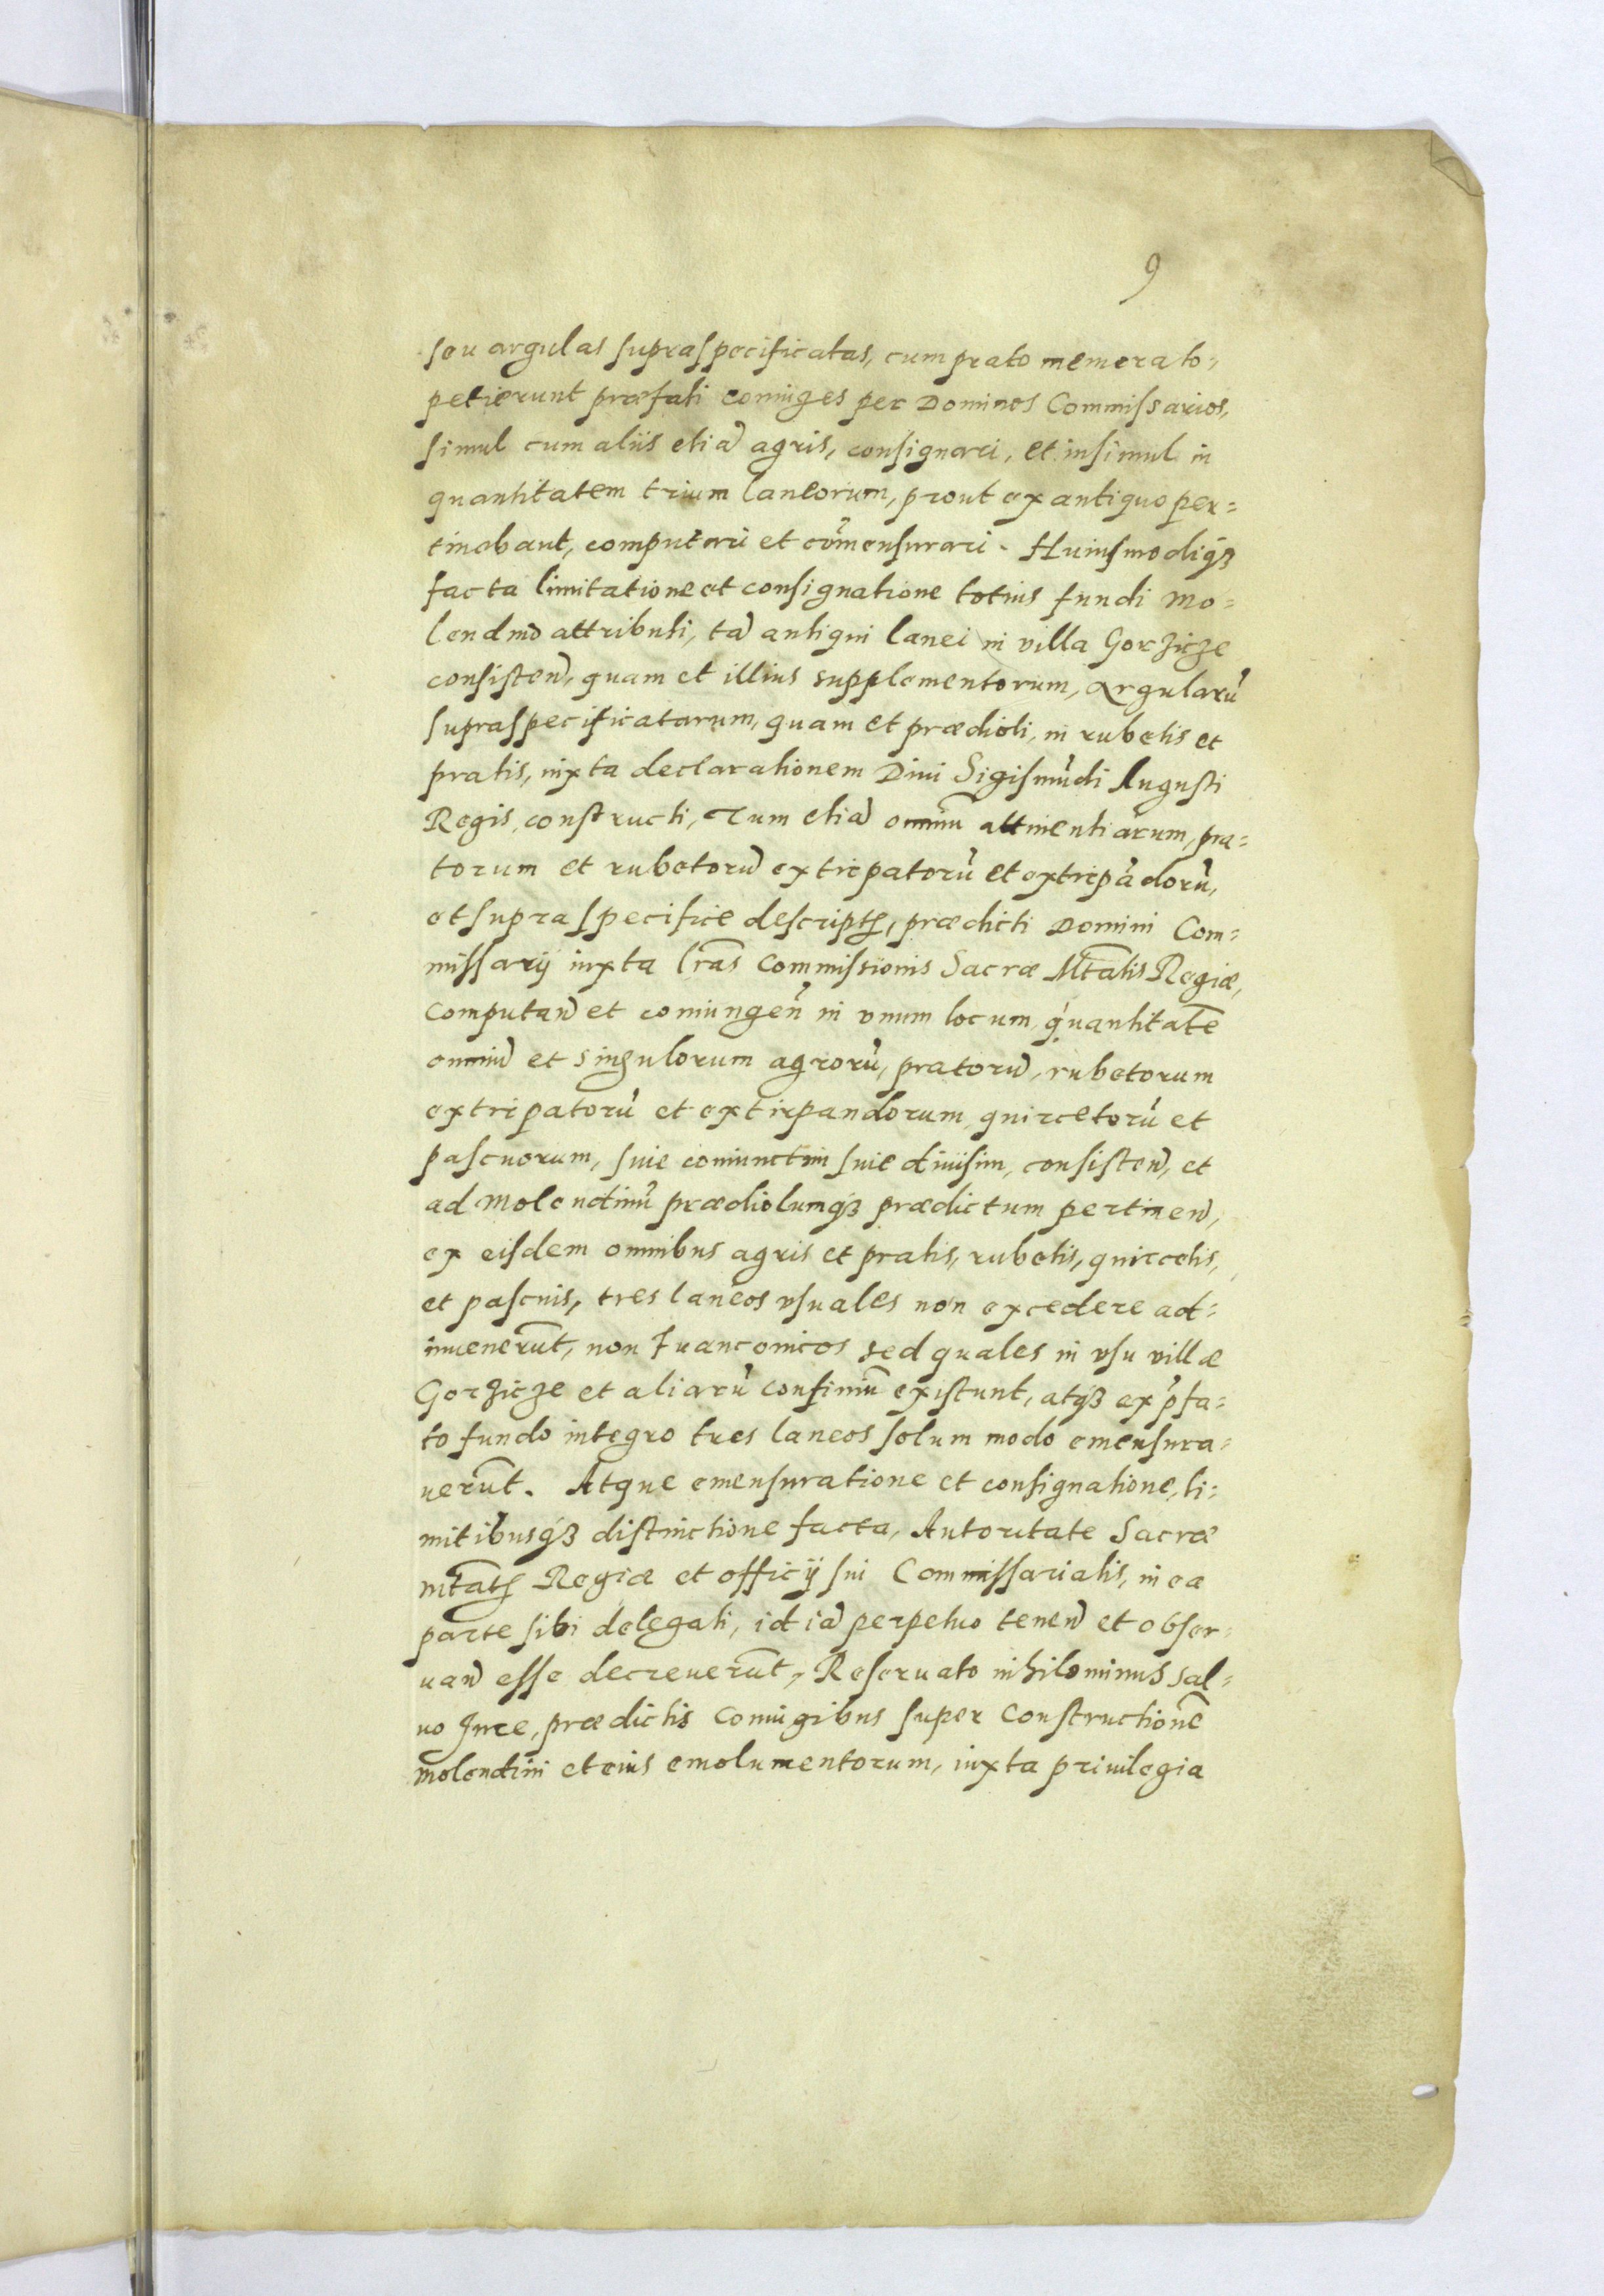 9
seu argulas supraspecificatas, cum prato memorato,
petierunt præfati coniuges per Dominos Commissarios,
simul cum aliis etiã agris, consignari, et insimul in
quantitatem trium laneorum, prout ex antiquo per=
tinebant, computari et cõmensurari. Huiusmodiq3
facta limitatione et consignatione totius fundi mo=
lendino attributi, tã antiqui lanei in villa Gorzicze
consisten̄, quam et illius supplementorum, argularũ
supraspecificatarum, quam et prædioli, in rubetis et
pratis, iuxta declarationem Diui Sigismũdi Augusti
Regis, constructi, Tum etiã omniũ attinentiarum, pra=
torum et rubetorũ extirpatorũ et extirpãdorũ,
et supra specifice descriptꝭ, prædicti Domini Com=
missarij iuxta lr̃as Commissionis Sacræ Mt̃atis Regiæ,
computan̄ et coniungen̄ in vnum locum, quantitatẽ
omniũ et singulorum agrorũ, pratorũ, rubetorum
extirpatorũ et extirpandorum, quircetorũ et
pascuorum, siue coniunctim siue diuisim, consisten̄, et
ad molendinũ prædiolumq3 prædictum pertinen̄,
ex eisdem omnibus agris et pratis, rubetis, quircetis,
et pascuis, tres laneos vsuales non excedere ad=
inuenerũt, non Franconicos sed quales in vsu villæ
Gorzicze et aliarũ confiniũ existunt, atq3 ex p̃fa=
to fundo integro tres laneos solum modo emensura=
uerũt. Atque emensuratione et consignatione, li=
mitibusq3 distinctione facta, Autoritate Sacræ
mt̃atꝭ Regiæ et officij sui Commissarialis, in ea
parte sibi delegati, id iã perpetuo tenen̄ et obser=
uan̄ esse decreuerũt, Reseruato nihilominus sal=
uo Jure, prædictis Coniugibus super Constructionẽ
molendini et eius emolumentorum, iuxta priuilegia